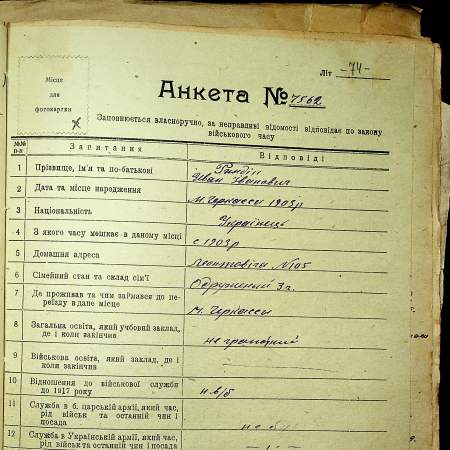 Літ -74-
Місце
для
фотокартки
Анкета № 7562
Заповнюється власноручно, за неправдиві відомості відповідає по закону
військового часу
№№ п-п Запитання Відповіді
1 Прізвище, ім'я та по-батькові
Иван Іванович
2 Дата та місце народження м. Черкасси 1905р
3 Національність Українець
4 З якого часу мешкає в даному місці с 1905р
5 Домашня адреса Леонтовіча №105
6 Сімейний стан та склад сім'ї
7 Де проживав та чим займався до пе-
реїзду в дане місце м. Черкасси
8 Загальна освіта, який учбовий заклад,
де і коли закінчив не грамотний
9 Військова освіта, який заклад, де і
коли закінчив
10 Відношення до військової служби
до 1917 року н в/б
11 Служба в б. царській армії, який час,
рід військ та останній чин і
посада
12 Служба в Українській армії, який час,
рід військ та останній чин і посада